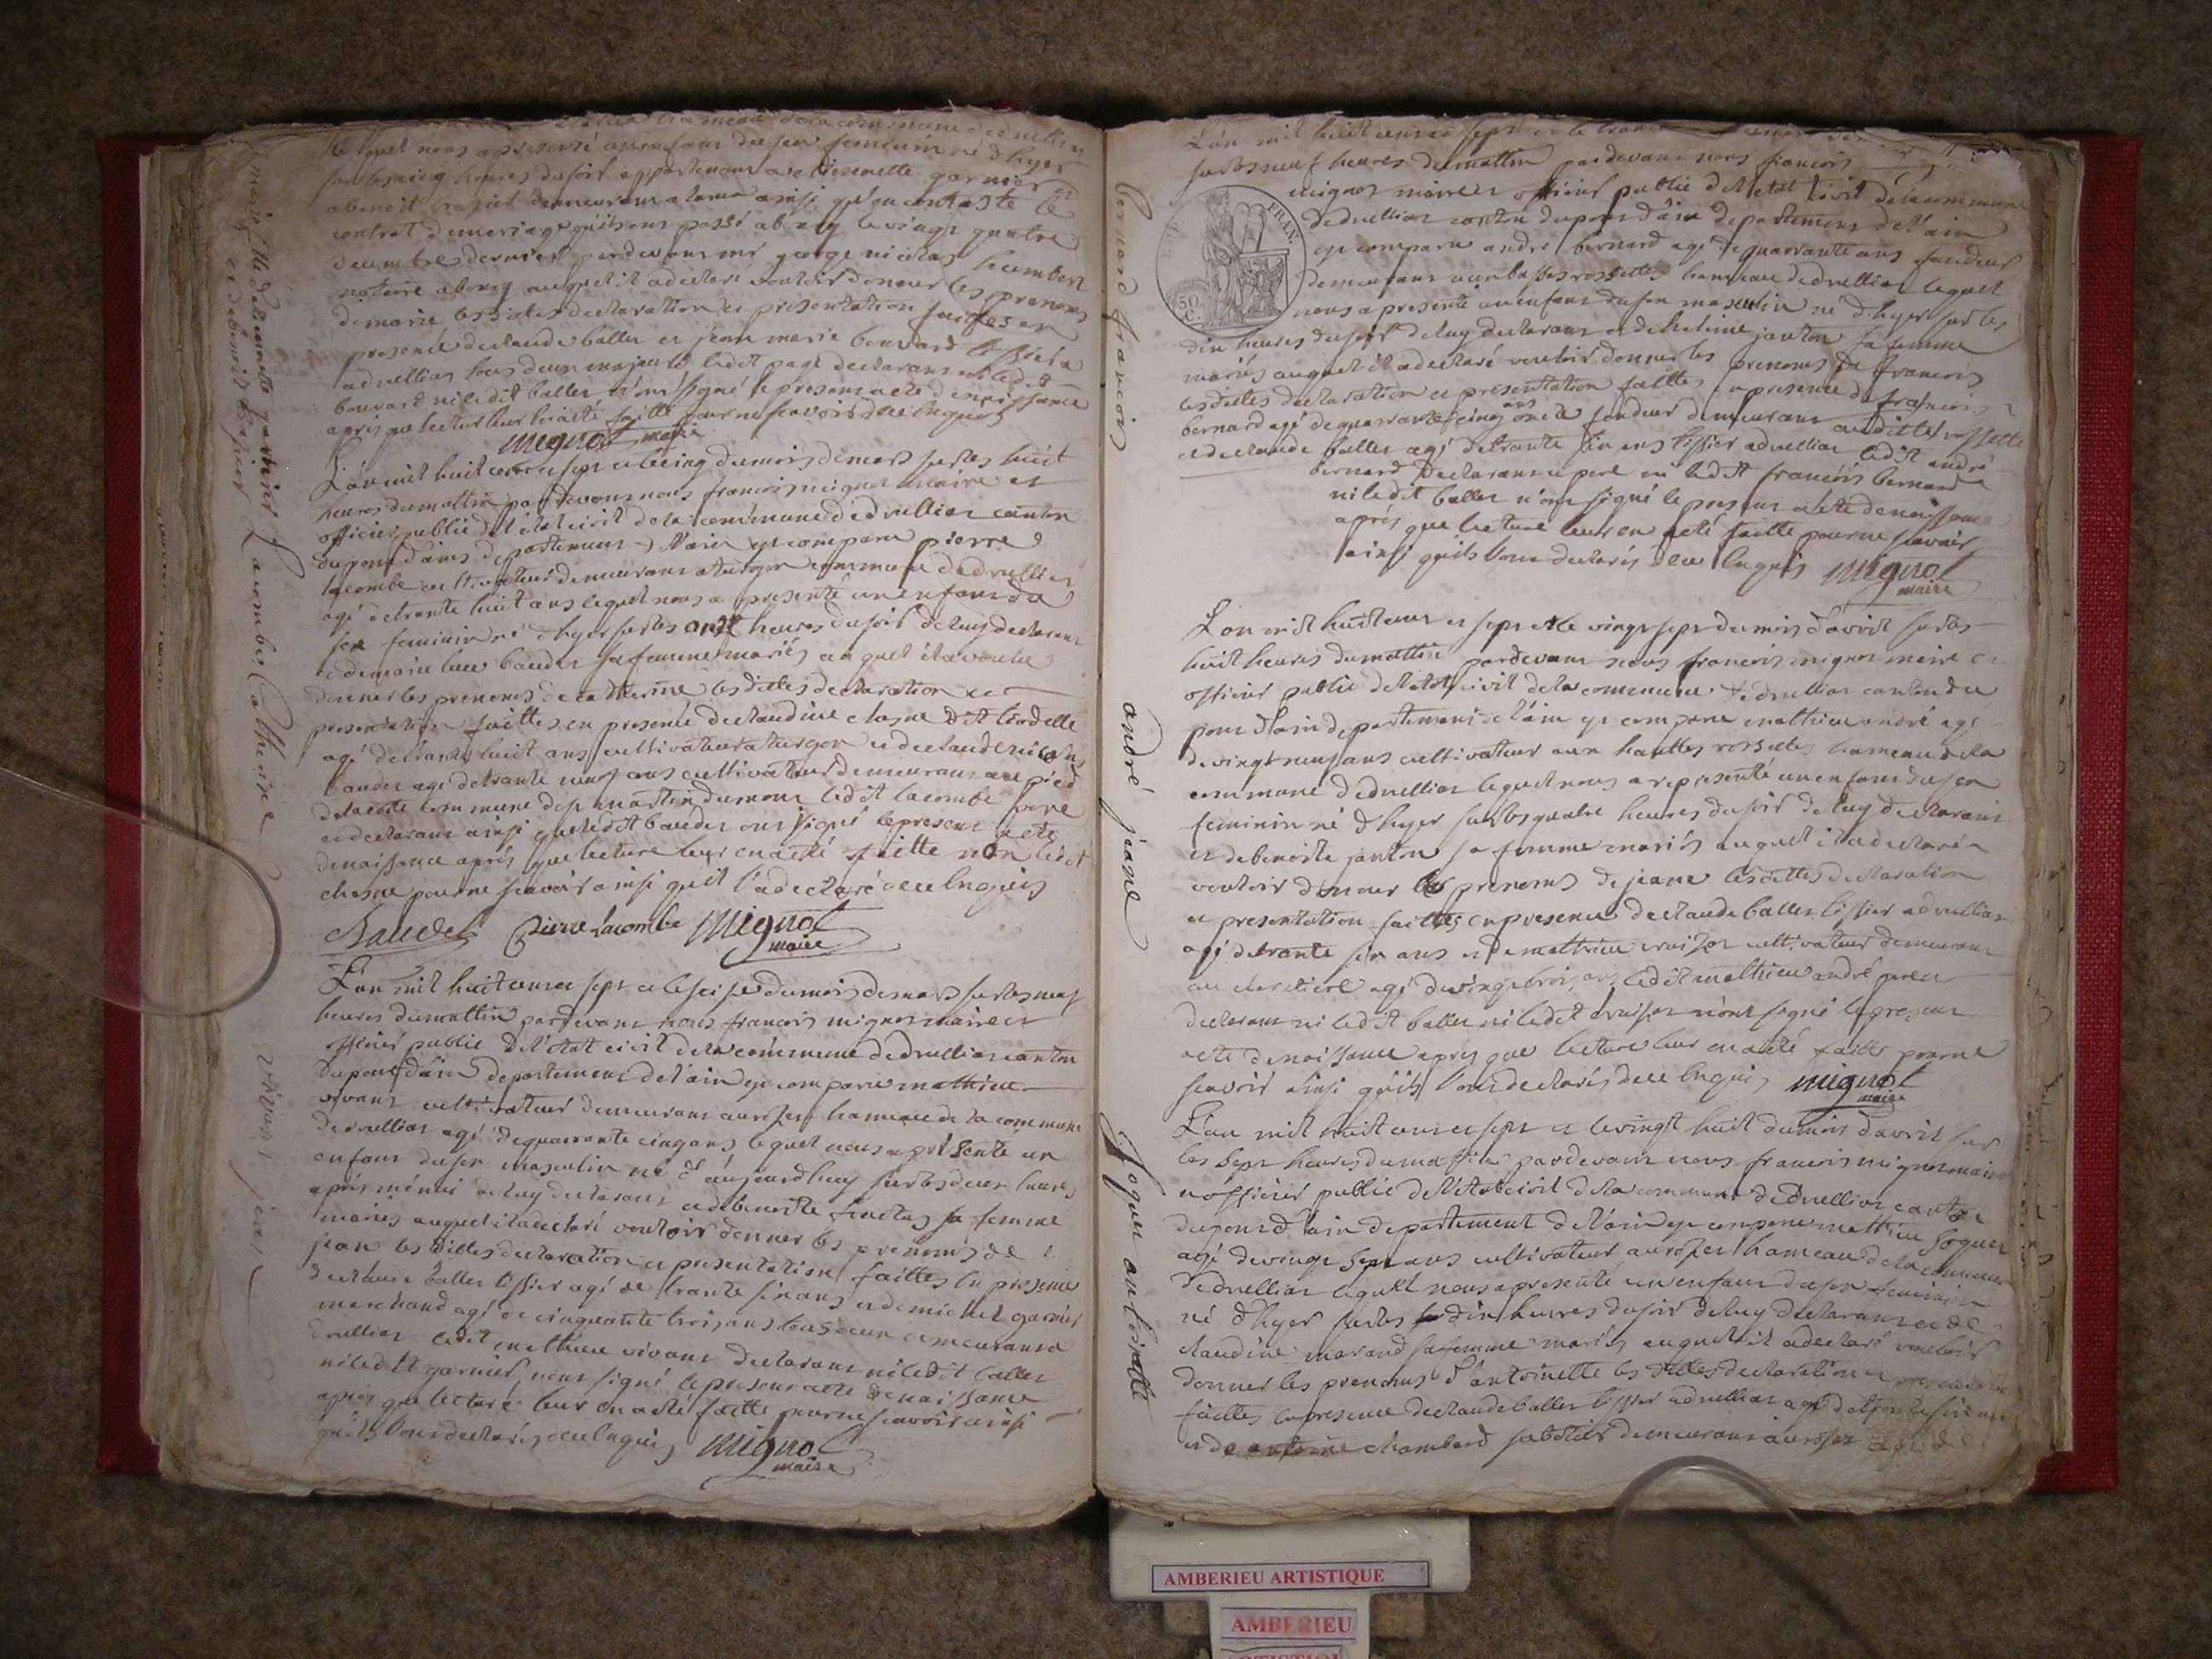 lequel nous a presenté un enfant du sex feminin né d'hyer
sur les cinq heures du soir appartenant a etiennette garnier et
a benoit
contrat de mariage qu'ils ont passé a bourg le vingt quatre
decembre dernier pardevant mr george nicolas humbert
notaire a bourg auquel il a declaré vouloir donner les prenoms
de marie les dittes declaration et presentation faittes en
presence de claude ballet et jean marie bouvard tissier a
druillias tous deux majeurs ledit page declarant ni ledit
bouvard ni ledit ballet n'ont signé le present acte de naissance
apres que lecture leur en a été faitte pour ne scavoir de ce enquis
mignot maire
L'an mil huit cent et sept et le cinq du mois de mars sur les huit
heures du mattin pardevant nous francois mignot maire et
officier public de l'état civil de la commune de druillias canton
du pont d'ains departement de l'ain est comparu pierre
lacombe cultivateur demeurant a turgon commune de druillias
agé de trante huit ans lequel nous a presenté un enfant du
sex feminin né d'hyer sur les onze heures du soir de luy declarant
et de marie baudet sa femme mariés auquel il a voulu
donner les prenoms de catherine les dittes declaration et
presentation faittes en presence de claudine chosne dit
agé de trante huit ans cultivateur a turgon et de claude nicolas
baudet agé de trante neuf ans cultivateur demeurant au pied
de la coste commune de st martin du mont ledit lacombe pere
et declarant ainsi que ledit baudet ont signé le present acte
de naissance aprés que lecture leur en a eté faitte non ledit
chosne pour ne scavoir ainsi qu'il l'a declaré de ce enquis
Baudet Pierre Lacombe mignot
maire
L'an mil huit cent et sept et le seise du mois de mars sur les neuf
heures du mattin pardevant nous francois mignot maire et
officier public de l'état civil de la commune de druillias canton
du pont d'ain departement de l'ain est comparu mathieu
vivant cultivateur demeurant au rosset hameau de la commune
de druillias agé de quarrante cinq ans lequel nous a presenté un
enfant du sex masculin né d'aujourd'huy sur les deux heures
aprés minuit de luy declarant et de benoite sa femme
mariés auquel il a declaré vouloir donner les prenoms de
jean les dittes declaration et presentation faittes en presence
de claude ballet tissier agé de trante six ans et de michel garnier
marchand agé de cinquante trois ans tous deux demeurant a
druillias ledit mathieu vivant declarant ni ledit ballet
ni ledit garnier n'ont signé le present acte de naissance
aprés que lecture leur en a été faitte pour ne scavoir ainsi
qu'ils l'ont declarés de ce enquis mignot
maire
marie fille d'etiennette garnier
et de benoit
Lacombe Catherine
vivant jean
L'an mil huit cent et sept et le trante
sur les neuf heures du mattin pardevant nous francois
mignot maire et officier public de l'état civil de la commune
de druillias canton du pont d'ain departement de l'ain
est comparu andré bernard agé de quarrante ans fendeur
demeurant aux basses rossettes hameau de druillias lequel
nous a presenté un enfant du sex masculin né d'hyer sur les
dix heures du soir de luy declarant et de janton sa femme
mariés auquel il a declaré vouloir donner les prenoms de francois
les dittes declaration et presentation faittes en presence de francois
bernard agé de quarrante cinq ans fendeur demeurant auditte rossette
et de claude ballet agé de trante six ans tissier a druillias ledit andré
bernard declarant et pere ni ledit francois bernard
ni ledit ballet n'ont signé le present acte de naissance
aprés que lecture leur en a eté faitte pour ne scavoir
ainsi qu'ils l'ont declarés de ce enquis mignot
maire
L'an mil huit cent et sept et le vingt sept du mois d'avril sur les
huit heures du mattin pardevant nous francois mignot maire et
officier public de l'état civil de la commune de druillias canton du
pont d'ain departement de l'ain est comparu mathieu andré agé
de vingt neuf ans cultivateur aux hauttes rossettes hameau de la
commune de druillias lequel nous a representé un enfant du sex
feminin né d'hyer sur les quatre heures du soir de luy declarant
et de benoite janton sa femme mariés auquel il a declaré
vouloir donner les prenoms de jeane les dittes declaration
et presentation faittes en presence de claude ballet tissier a druillias
agé de trante six ans et de mathieu cultivateur demeurant
au agé de vingt trois ans ledit mathieu andré pere et
declarant ni ledit ballet ni ledit n'ont signé le present
acte de naissance aprés que lecture leur en a été faitte pour ne
scavoir ainsi qu'ils l'ont declarés de ce enquis mignot
maire
L'an mil huit cent et sept et le vingt huit du mois d'avril sur
les sept heures du mattin pardevant nous francois mignot maire
et officier public de l'état civil de la commune de druillias canton
du pont d'ain departement de l'ain est comparu mathieu goguet
agé de vingt sept ans cultivateur au rosset hameau de la commune
de druillias lequel nous a presenté un enfant du sex feminin
né d'hyer sur les dix heures du soir de luy declarant et de
claudine marand sa femme mariés auquel il a declaré vouloir
donner les prenoms d'antoinette les dittes declaration et presentation
faittes en presence de claude ballet tissier a druillias agé de trante six ans
et de antoine chambard sabotier demeurant au rosset agé de
bernard francois
andré jeane
goguet antoinette
FRAN.
50
C.
AMBERIEU ARTISTIQUE
AMBERIEU
ARTISTIQUE